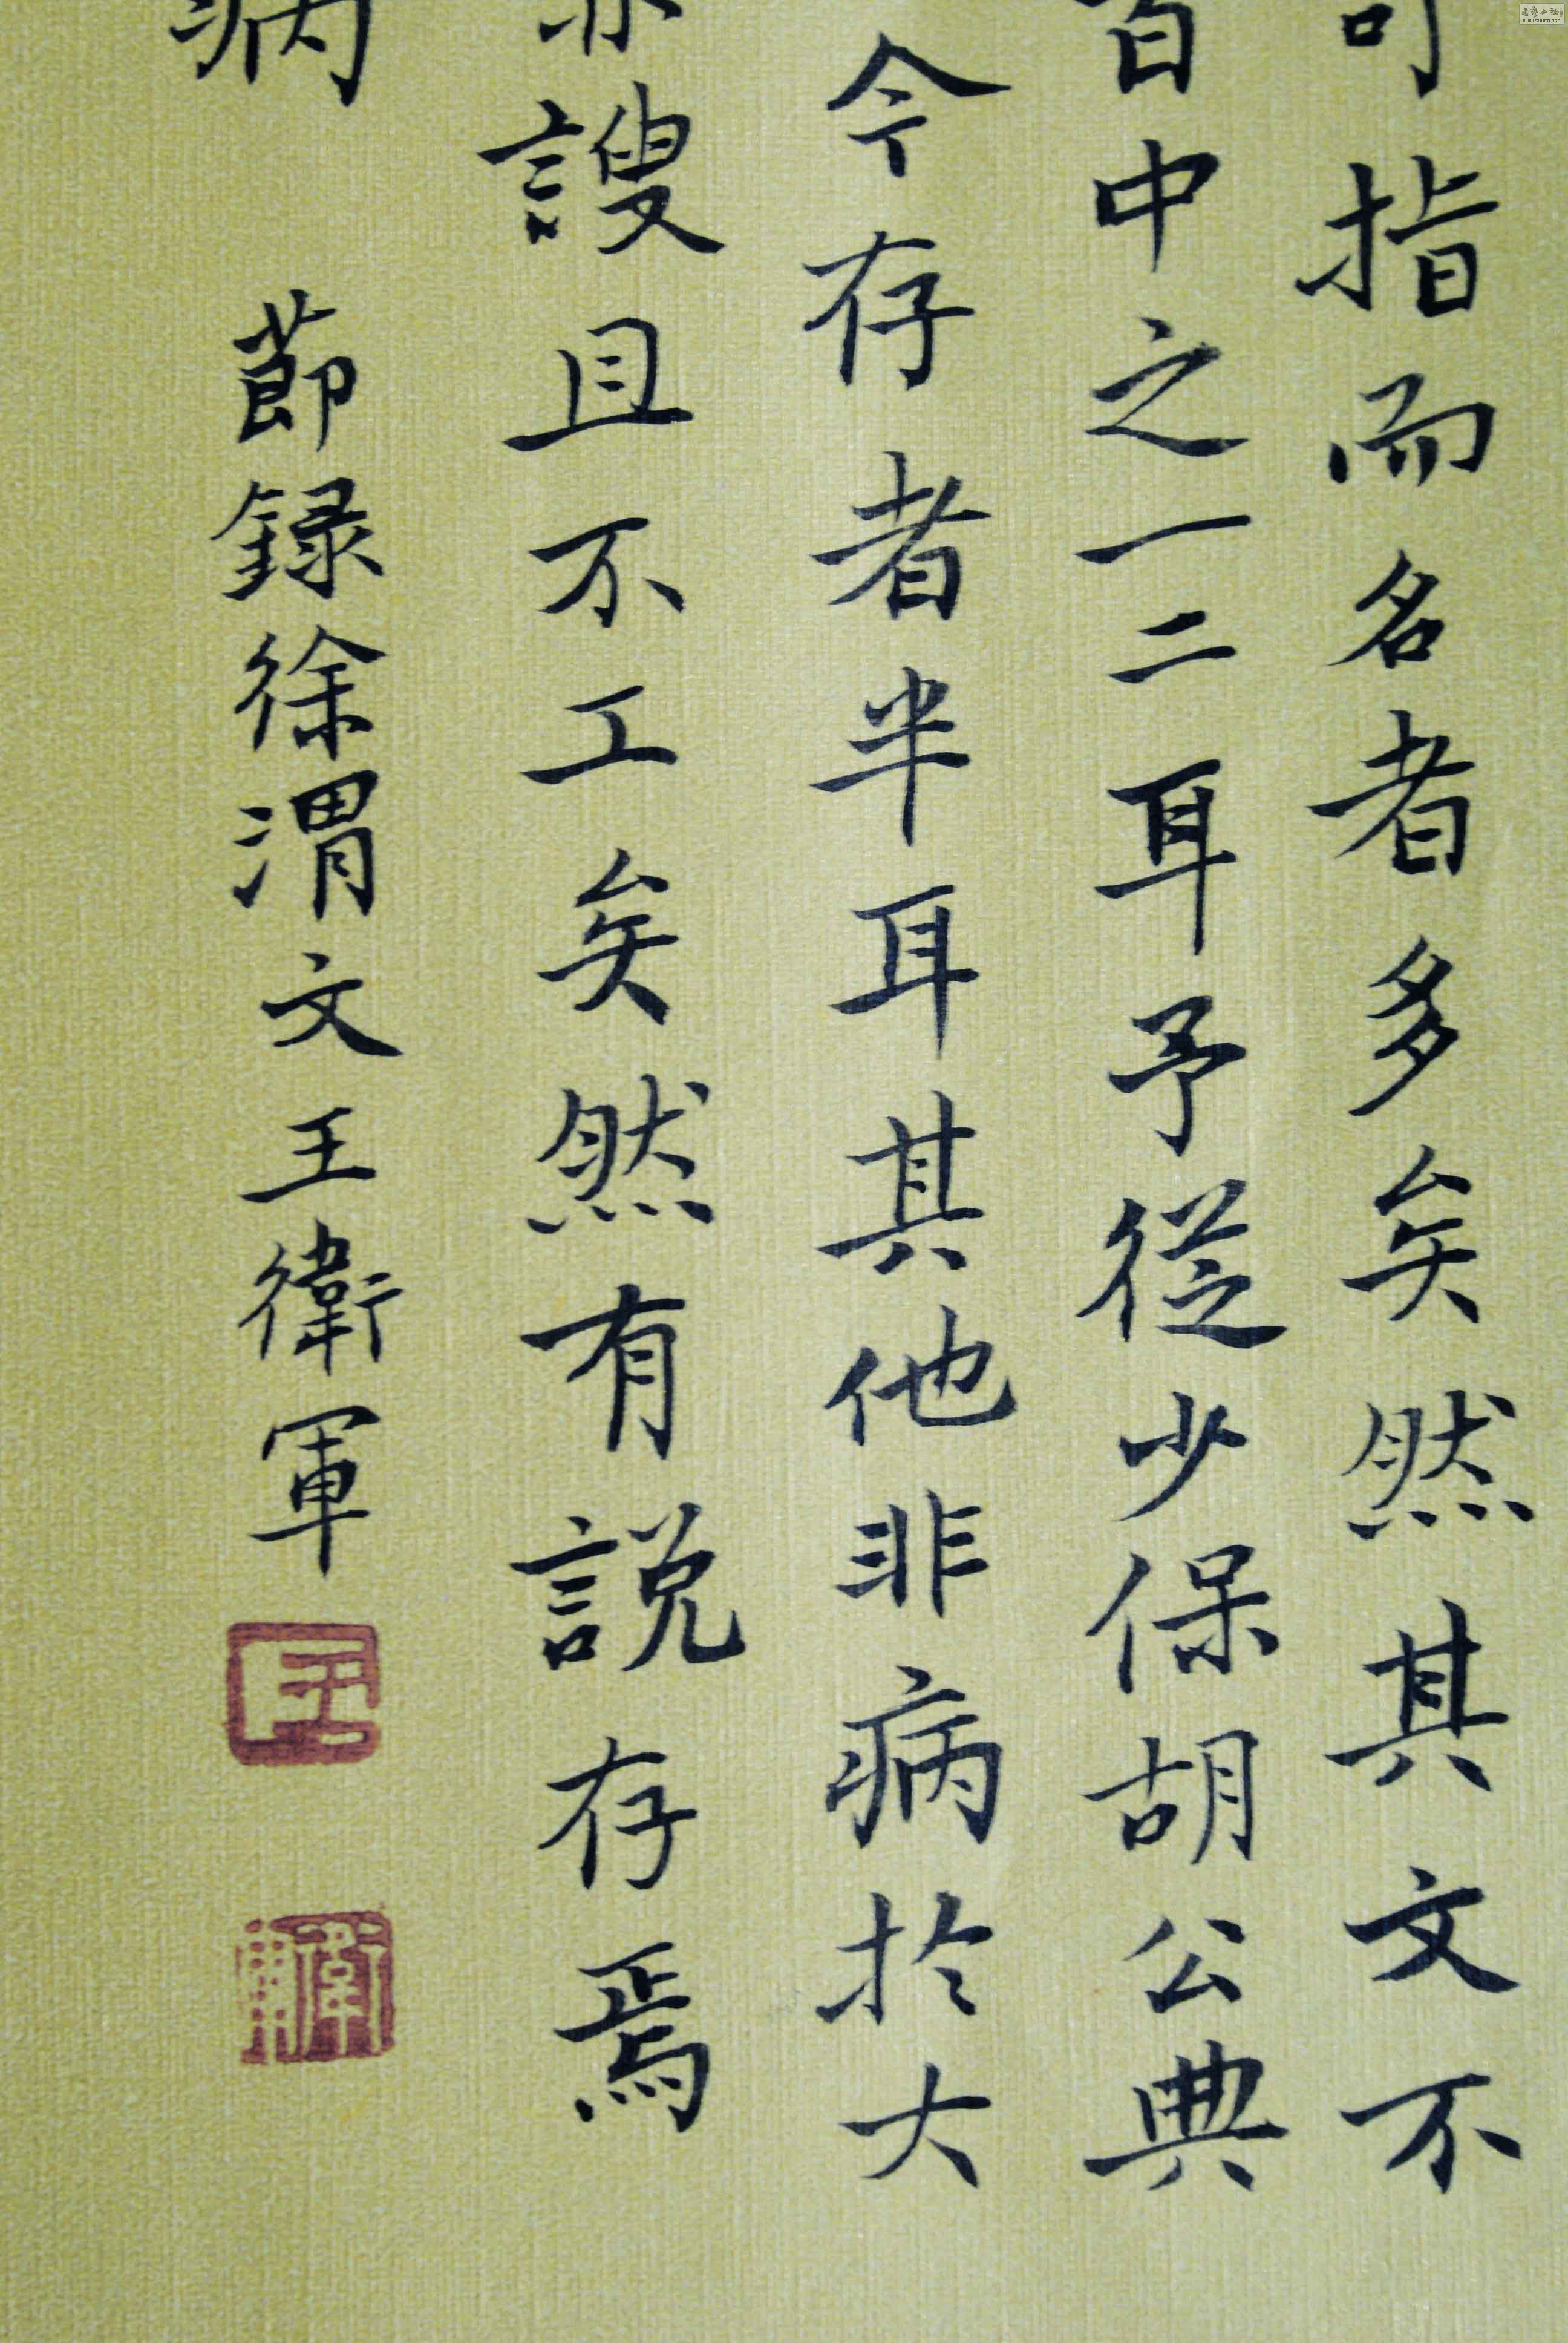 可指而名者多矣然其文不
百中之一二耳予從少保胡公典
今存者半耳其他非病於大
亦謏且不工矣然有説存焉
病
節録徐渭文王衛軍